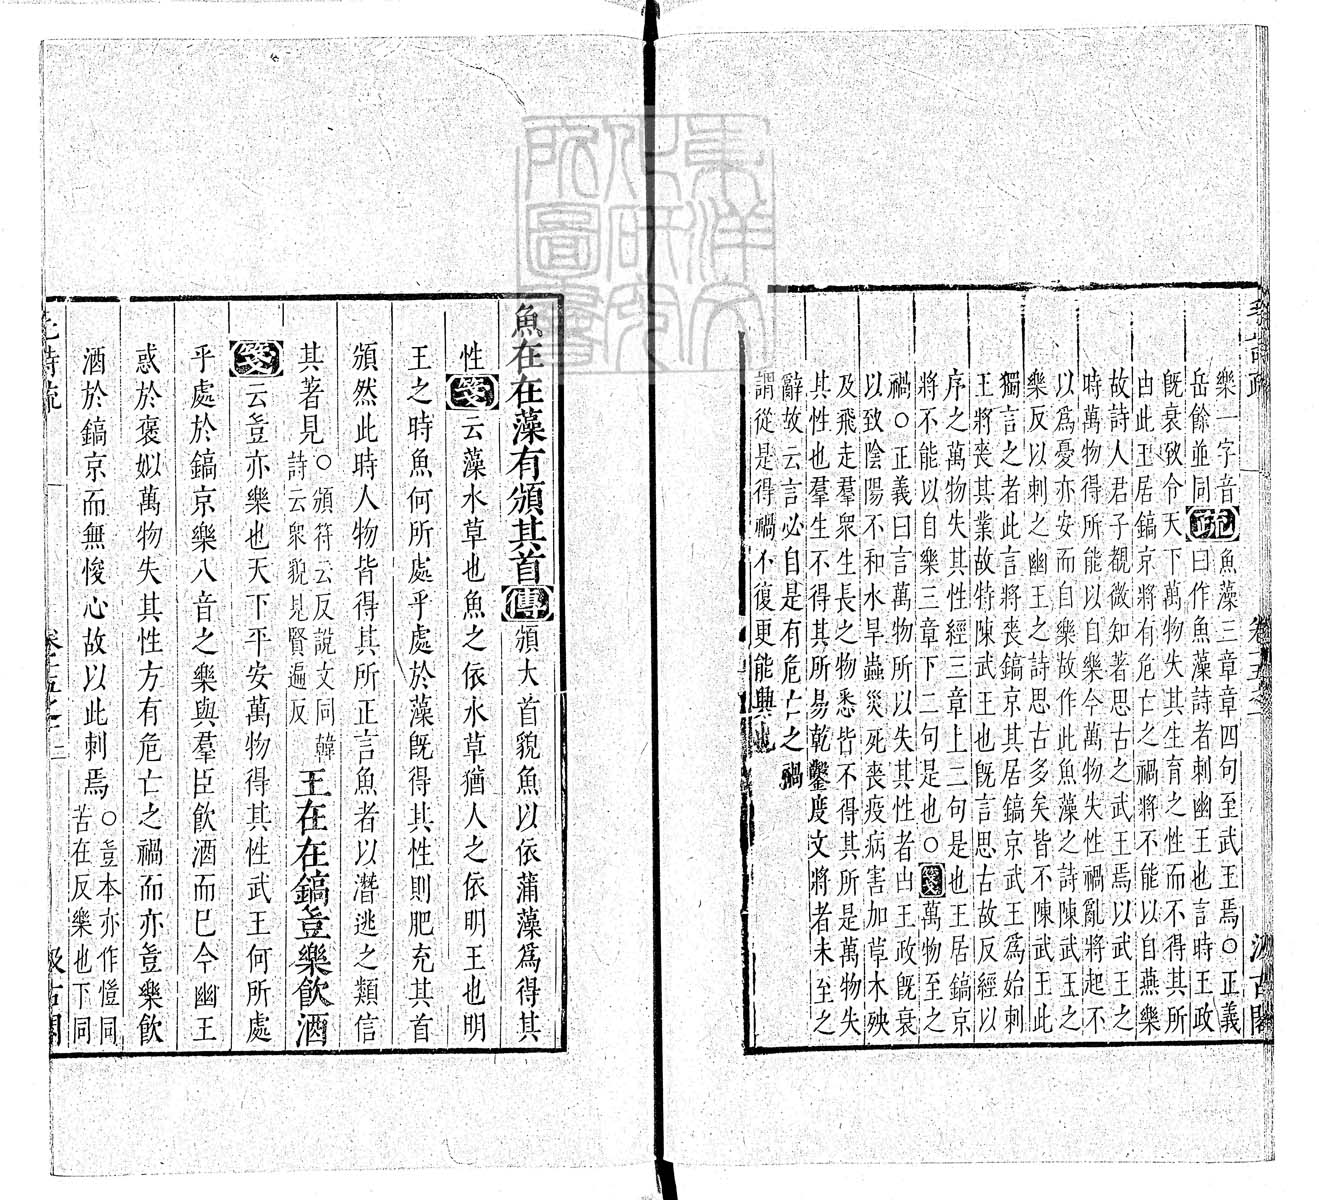 毛詩疏
卷十五之一
汲古閣
樂一字音
岳餘並同
疏
魚藻三章章四句至武王焉○正義
曰作魚藻詩者刺幽王也言時王政
旣衰致令天下萬物失其生育之性而不得其所
由此王居鎬京將有危亡之禍將不能以自燕樂
故詩人君子觀微知著思古之武王焉以武王之
時萬物得所能以自樂今萬物失性禍亂將起不
以爲憂亦安而自樂故作此魚藻之詩陳武王之
樂反以刺之幽王之詩思古多矣皆不陳武王此
獨言之者此言將喪鎬京其居鎬京武王爲始刺
王將喪其業故特陳武王也旣言思古故反經以
序之萬物失其性經三章上二句是也王居鎬京
將不能以自樂三章下二句是也○箋萬物至之
禍○正義曰言萬物所以失其性者由王政旣衰
以致陰陽不和水旱蟲災死喪疫病害加草木殃
及飛走羣衆生長之物悉皆不得其所是萬物失
其性也羣生不得其所易乾鑿度文將者未至之
辭故云言必自是有危亡之禍
謂從是得禍不復更能興也
魚在在藻有頒其首傳頒大首貌魚以依蒲藻爲得其
性箋云藻水草也魚之依水草猶人之依明王也明
王之時魚何所處乎處於藻旣得其性則肥充其首
頒然此時人物皆得其所正言魚者以潛逃之類信
其著見○頒符云反說文同韓
詩云衆貌見賢遍反
王在在鎬豈樂飲酒
箋云豈亦樂也天下平安萬物得其性武王何所處
乎處於鎬京樂八音之樂與羣臣飲酒而已今幽王
惑於褒姒萬物失其性方有危亡之禍而亦豈樂飲
酒於鎬京而無悛心故以此刺焉
○豈本亦作愷同
苦在反樂也下同
毛詩疏
卷十五之一
二
汲古閣